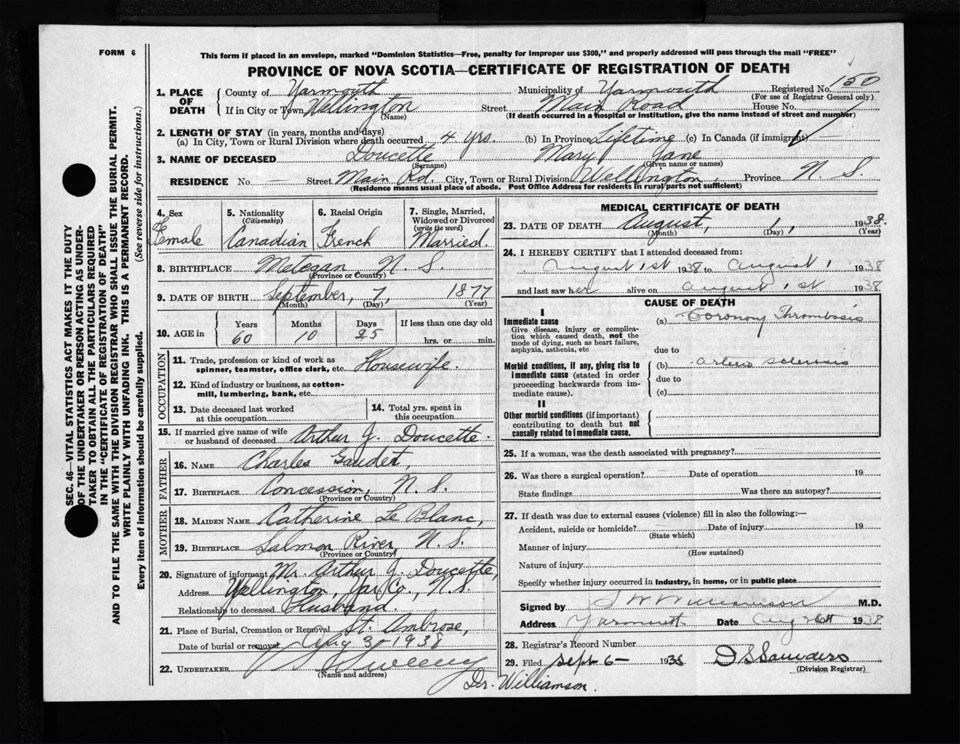 FORM 6
This form if placed in an envelope, marked "Dominion Statistics—Free, penalty for improper use $300," and properly addressed will pass through the mail "FREE"
PROVINCE OF NOVA SCOTIA—CERTIFICATE OF REGISTRATION OF DEATH
1. PLACE OF DEATH County of Yarmouth Municipality of Yarmouth Registered No. 150
(For use of Registrar General only)
If in City or Town Wellington Street Main Road House No.
(Name) (If death occurred in a hospital or institution, give the name instead of street and number)
2. LENGTH OF STAY (in years, months and days)
(a) In City, Town or Rural Division where death occurred 4 yrs. (b) In Province Lifetime (c) In Canada (if immigrant)
3. NAME OF DECEASED Doucette Mary Jane
(Surname) (Given name or names)
RESIDENCE No. — Street Main Rd. City, Town or Rural Division Wellington, Province N. S.
(Residence means usual place of abode. Post Office Address for residents in rural parts not sufficient)
4. Sex Female
5. Nationality (Citizenship) Canadian
6. Racial Origin French
7. Single, Married, Widowed or Divorced (write the word) Married.
8. BIRTHPLACE Metegan, N. S.
(Province or Country)
9. DATE OF BIRTH September, 7, 1877
(Month) (Day) (Year)
10. AGE in Years 60 Months 10 Days 25 If less than one day old hrs. or min.
OCCUPATION
11. Trade, profession or kind of work as spinner, teamster, office clerk, etc. Housewife.
12. Kind of industry or business, as cotton-mill, lumbering, bank, etc.
13. Date deceased last worked at this occupation
14. Total yrs. spent in this occupation
15. If married give name of wife or husband of deceased Arthur J. Doucette.
FATHER
16. NAME Charles Gaudet,
17. BIRTHPLACE Concession, N. S.
(Province or Country)
MOTHER
18. MAIDEN NAME Catherine Le Blanc,
19. BIRTHPLACE Salmon River, N. S.
(Province or Country)
20. Signature of informant Mr. Arthur J. Doucette,
Address Wellington, Yar. Co., N. S.
Relationship to deceased Husband.
21. Place of Burial, Cremation or Removal St. Ambrose,
Date of burial or removal Aug 3 1938
22. UNDERTAKER Sweeny
(Name and address)
Dr. Williamson.
MEDICAL CERTIFICATE OF DEATH
23. DATE OF DEATH August, 1, 1938.
(Month) (Day) (Year)
24. I HEREBY CERTIFY that I attended deceased from:
August 1st 1938 to August 1 1938
and last saw her alive on August 1st 1938
CAUSE OF DEATH
I
Immediate cause
Give disease, injury or complication which caused death, not the mode of dying, such as heart failure, asphyxia, asthenia, etc
(a) Coronory Thrombosis
due to
Morbid conditions, if any, giving rise to immediate cause (stated in order proceeding backwards from immediate cause).
(b) Arterio sclerosis
due to
(c)
II
Other morbid conditions (if important) contributing to death but not causally related to immediate cause.
25. If a woman, was the death associated with pregnancy?
26. Was there a surgical operation? Date of operation 19
State findings Was there an autopsy?
27. If death was due to external causes (violence) fill in also the following:—
Accident, suicide or homicide? Date of injury 19
(State which)
Manner of injury
(How sustained)
Nature of injury
Specify whether injury occurred in industry, in home, or in public place
Signed by S W Williamson M.D.
Address Yarmouth Date Aug 1938
28. Registrar's Record Number
29. Filed Sept 6— 1938 D S Saunders
(Division Registrar)
SEC. 46—VITAL STATISTICS ACT MAKES IT THE DUTY
OF THE UNDERTAKER OR PERSON ACTING AS UNDER-
TAKER TO OBTAIN ALL THE PARTICULARS REQUIRED
IN THE "CERTIFICATE OF REGISTRATION OF DEATH"
AND TO FILE THE SAME WITH THE DIVISION REGISTRAR WHO SHALL ISSUE THE BURIAL PERMIT.
WRITE PLAINLY WITH UNFADING INK. THIS IS A PERMANENT RECORD.
Every item of information should be carefully supplied. (See reverse side for instructions.)